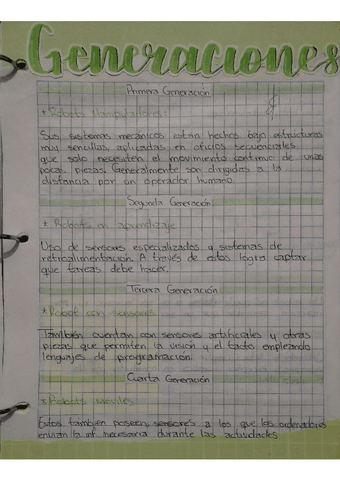 Generaciones
Primera Generación
* Robots Manipuladores:
Sus sistemas mecánicos están hechos bajo estructuras
muy sencillas, aplicadas en oficios secuenciales
que solo necesiten el movimiento continuo de unas
pocas piezas. Generalmente son dirigidas a la
distancia por un operador humano.
Segunda Generación
* Robots en aprendizaje
Uso de sensores especializados y sistemas de
retroalimentación. A través de estos logra captar
que tareas debe hacer.
Tercera Generación
* Robot con sensores
También cuentan con sensores artificiales y otras
piezas que permiten la visión y el tacto empleando
lenguajes de programación.
Cuarta Generación
* Robots Móviles
Estos también poseen sensores a los que los ordenadores
envían la inf. necesaria durante las actividades